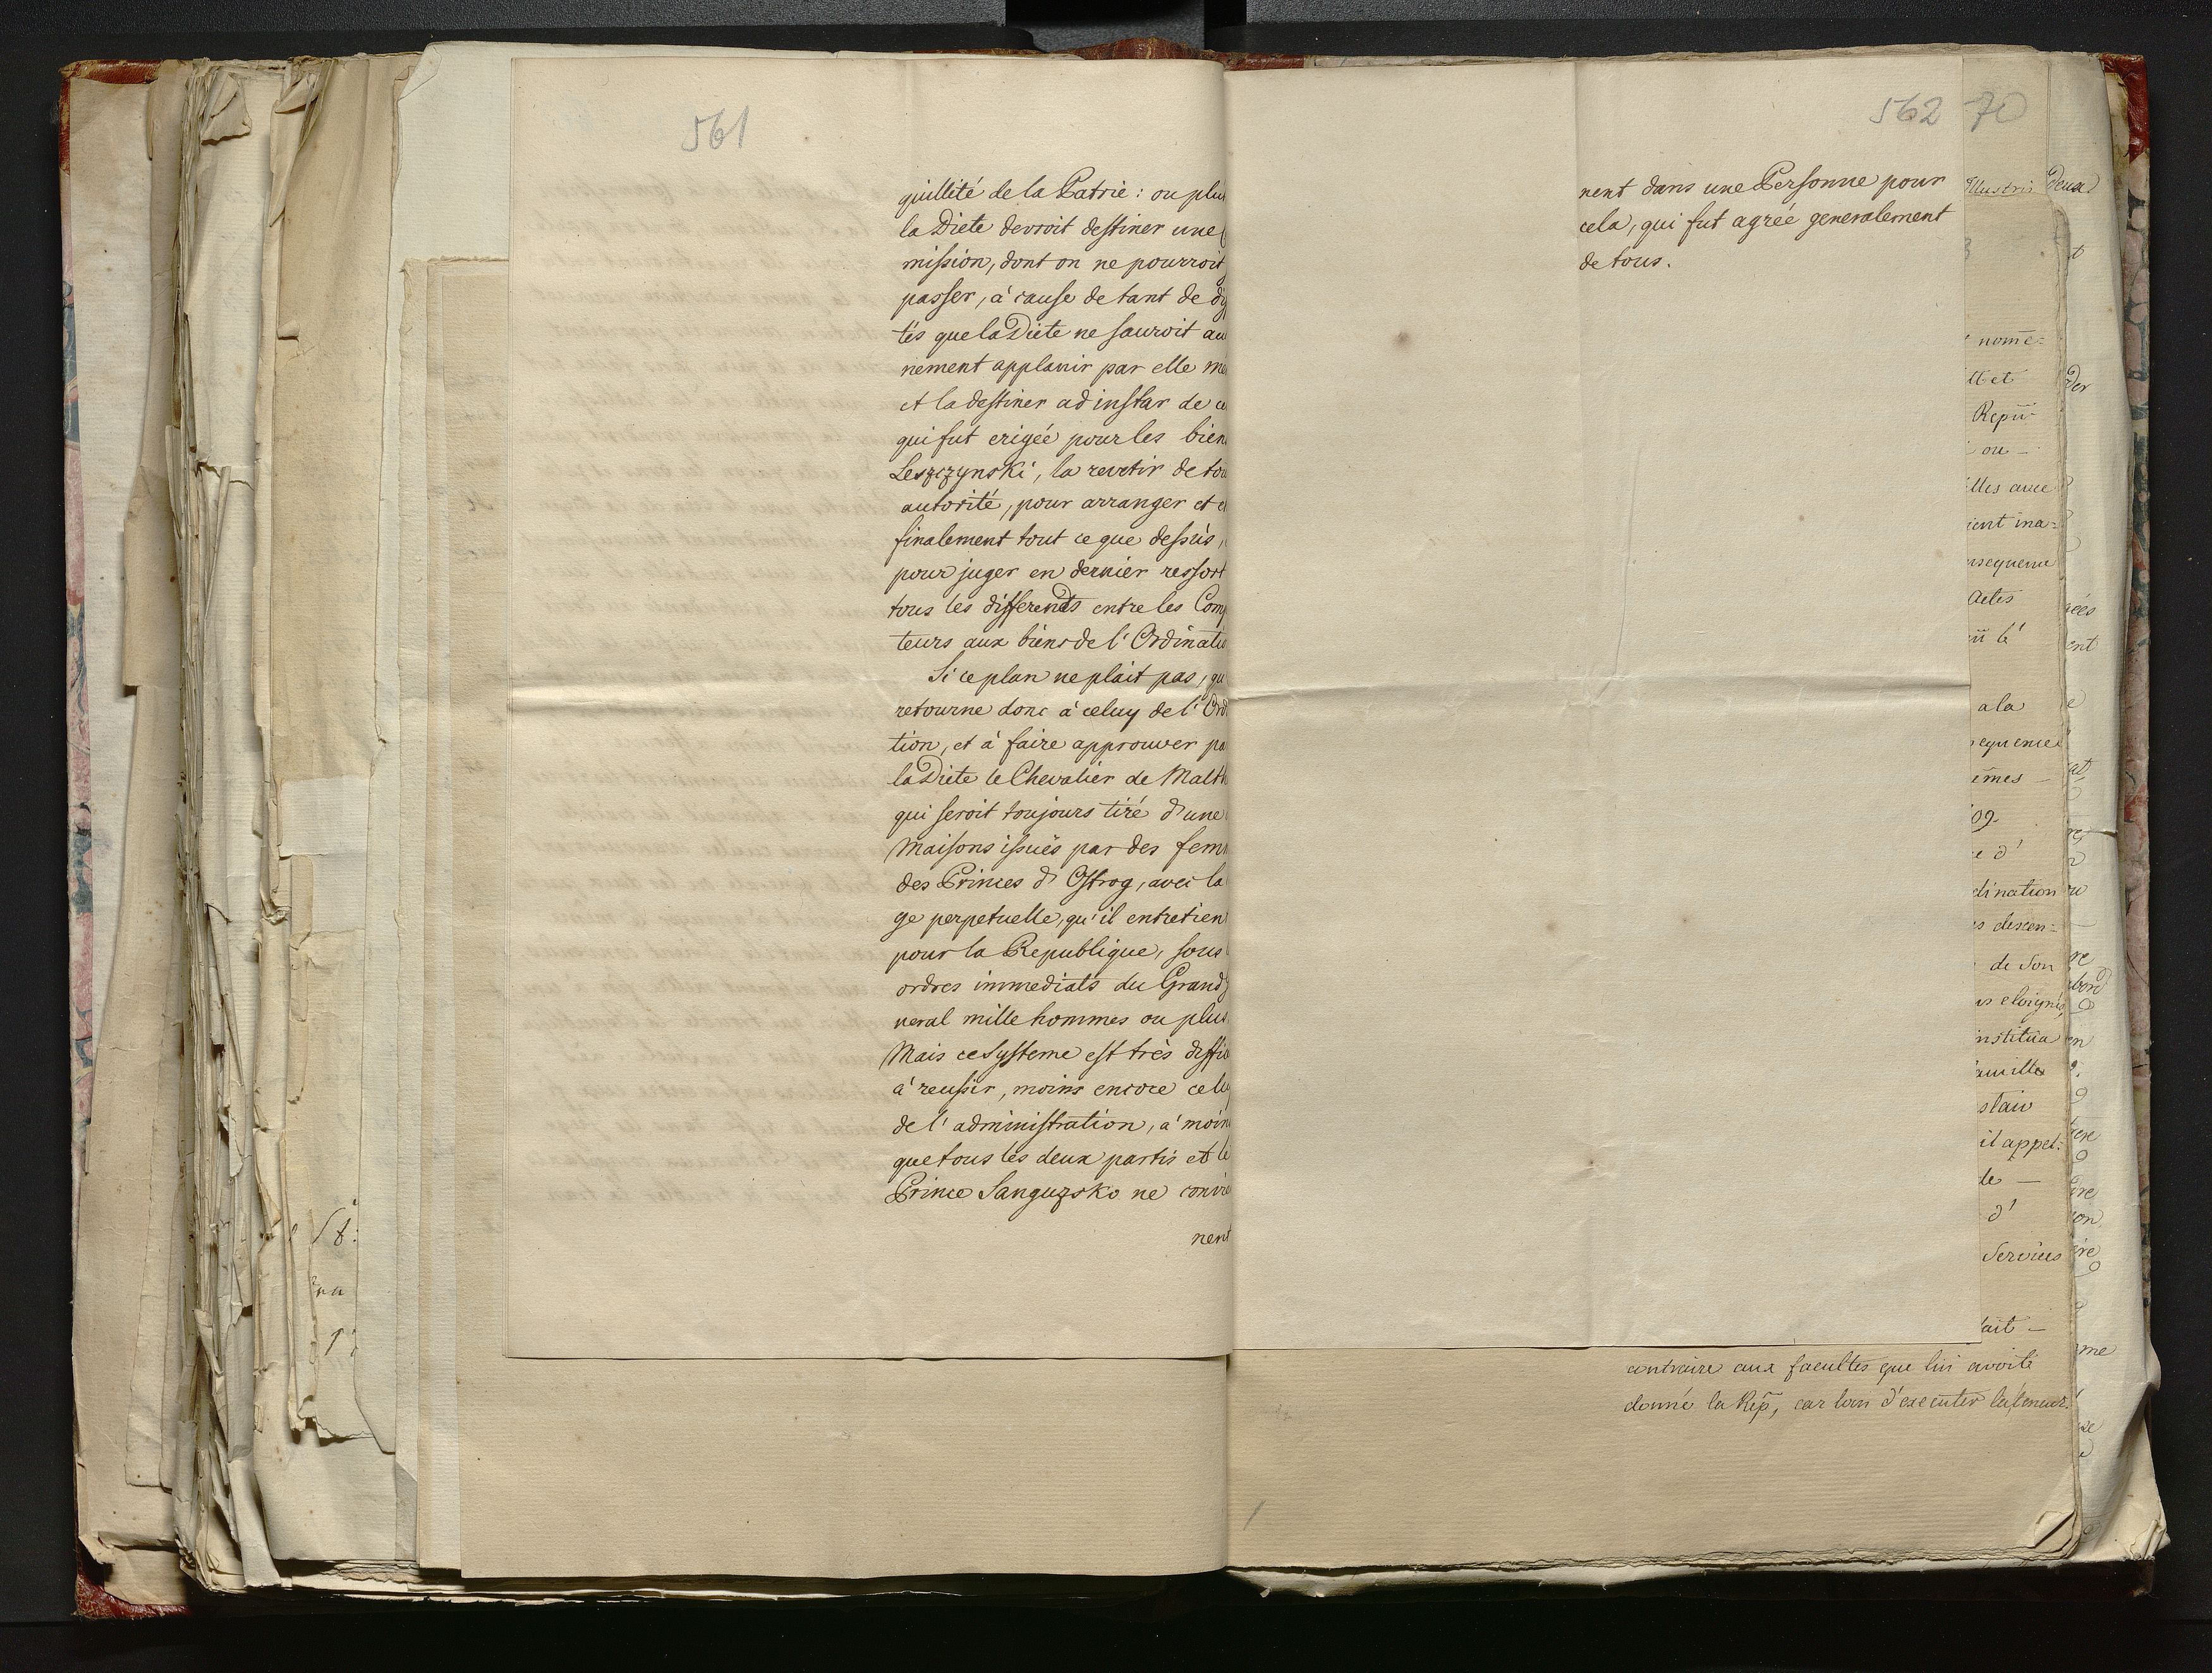 561
quillité de la Patrie : ou plu
la Diete devroit destiner une
mission, dont on ne pourroit
passer, à cause de tant de
tés que la Diete ne sauroit au
nement applanir par elle mê
et la destiner ad instar de ce
qui fut erigée pour les bien
Leszczynski, la revetir de tou
autorité, pour arranger et
finalement tout ce que dessus,
pour juger en dernier ressort
tous les differends entre les Com
teurs aux biens de l'Ordinatio
Si ce plan ne plait pas, qu
retourne donc à celuy de l'Ord
tion, et à faire approuver pa
la Diete le Chevalier de Malth
qui seroit toujours tiré d'une
Maisons issuës par des fem
des Princes d'Ostrog, avec la
ge perpetuelle, qu'il entretien
pour la Republique, sous
ordres immediats du Grand
neral mille hommes ou plus.
Mais ce systeme est très diffic
à reussir, moins encore celuy
de l'administration, à moin
que tous les deux partis et le
Prince Sanguszko ne convie
nent
562 70
nent dans une Personne pour
cela, qui fut agréé generalement
de tous.
Illustris
nome=
ll et
Repu
ou -
lles avec
ient ina=
nsequence
Actes
a la
equence
êmes -
09.
e d'
dination
s descen=
de Son
us eloignés
nstitua
amille
il appel=
de -
d'
Services
fait -
contraire aux facultes que lui avoit
donné la Rep, car loin d'executer